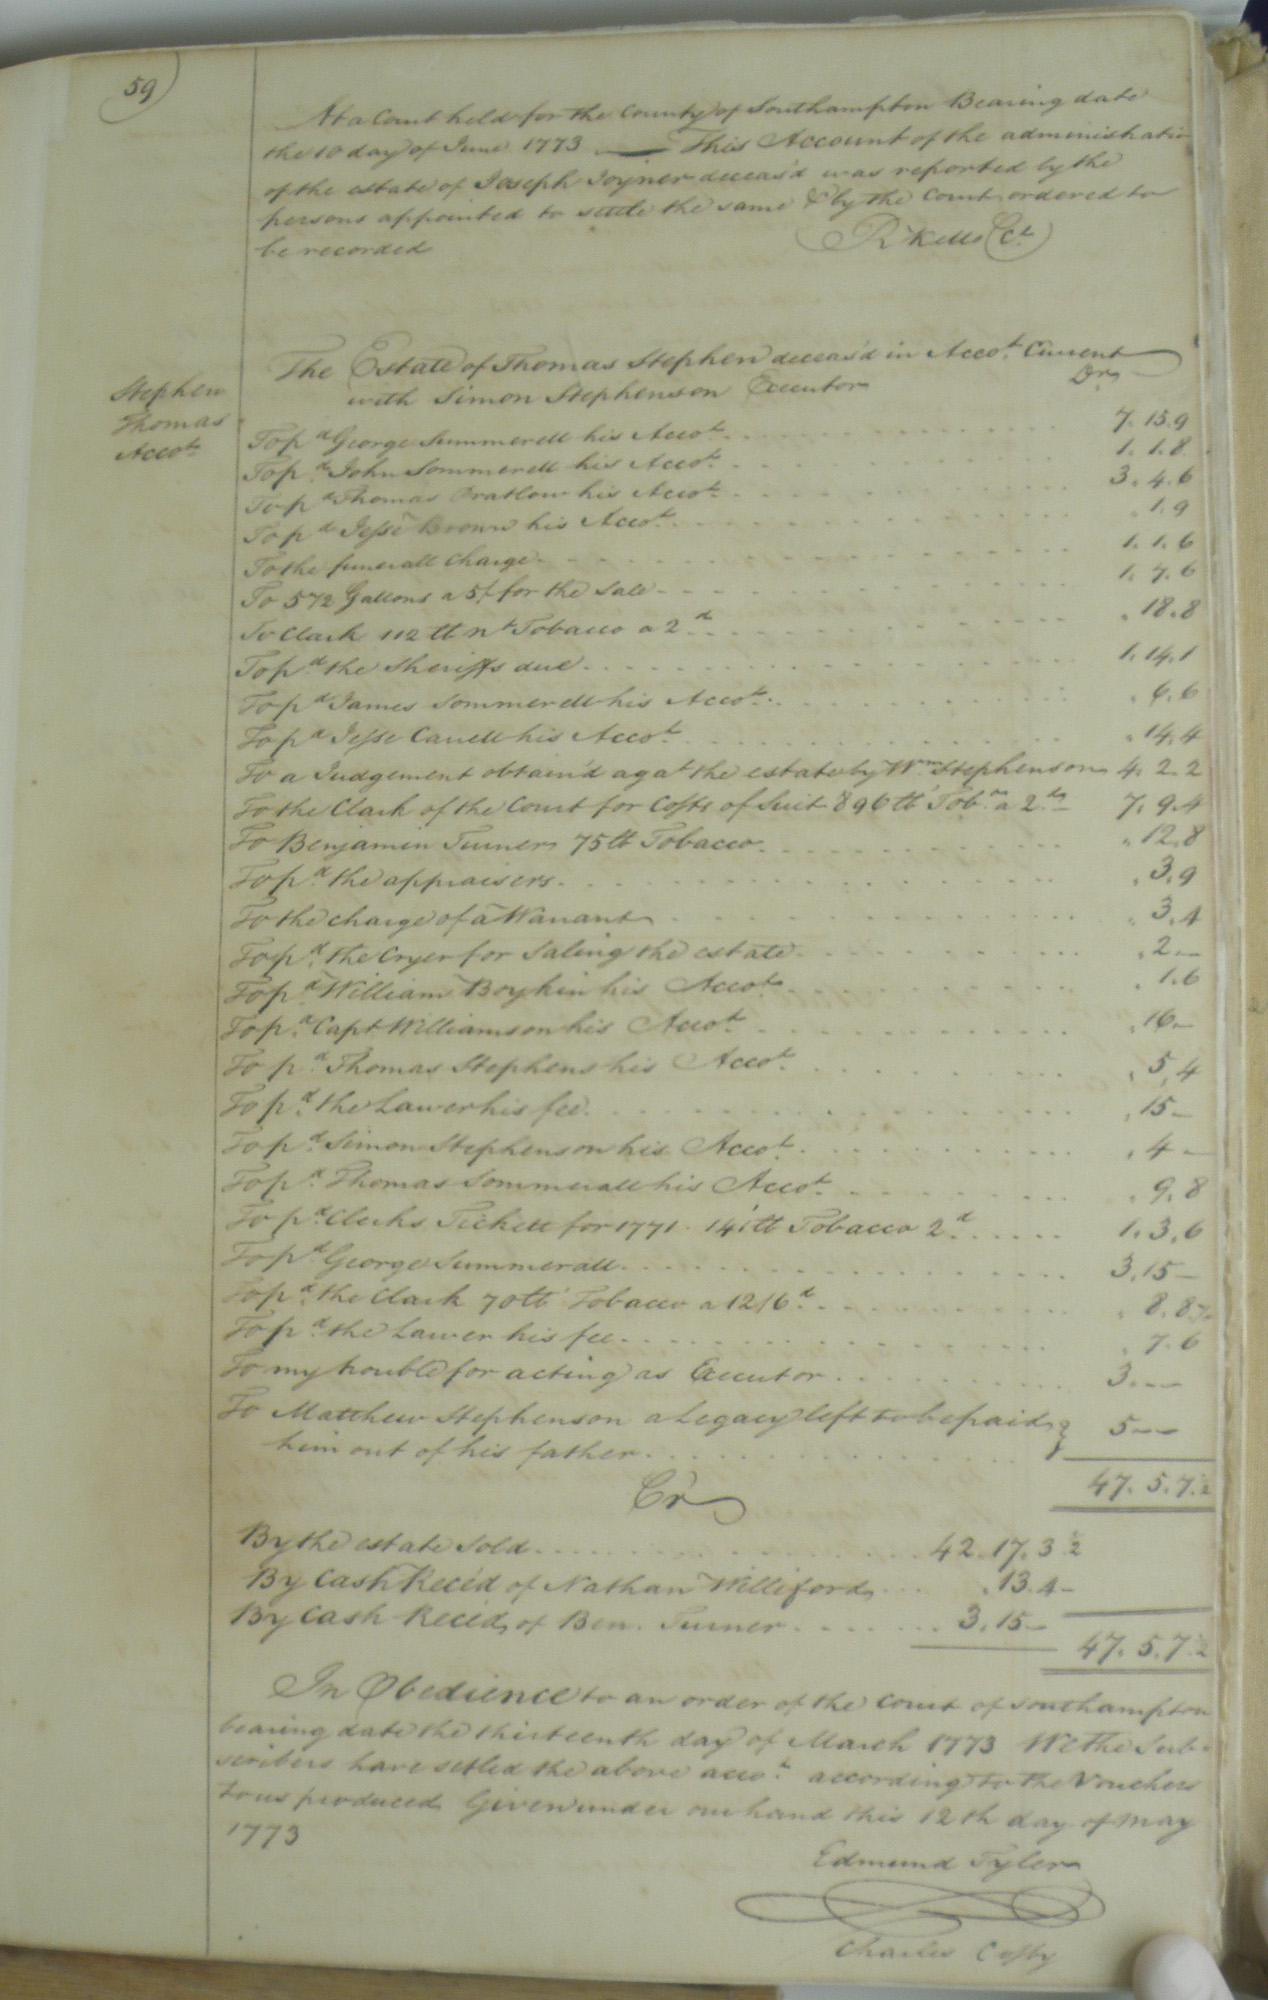 59
At a Court held for the County of Southampton Bearing date
the 10 day of June 1773 — This Account of the administratio
of the estate of Joseph Joyner deceas'd was reported by the
persons appointed to settle the same & by the Court ordered to
be recorded
R Kello Ct
Stephen
Thomas
Accot
The Estate of Thomas Stephen deceas'd in Accot Current
with Simon Stephenson Executor Dr
To pd George Summerell his Accot 7. 15. 9
To pd John Sommerell his Accot 1. 1. 8
To pd Thomas Bratlow his Accot 3. 4. 6
To pd Jesse Brown his Accot . 1. 9
To the funerall Charge 1. 1. 6
To 5 1/2 Gallons a 5/ for the Sale 1. 7. 6
To Clark 112 tt nt Tobacco a 2d . 18. 8
To pd the Sheriffs due 1. 14. 1
To pd James Sommerell his Accot . 6. 6
To pd Jesse Carrell his Accot . 14. 4
To a Judgement obtain'd agat the estate by Wm Stephenson 4. 2. 2
To the Clark of the Court for Costs of Suit 896 tt Tobo a 2d 7. 9. 4
To Benjamin Turner 75 tt Tobacco . 12. 8
To pd the appraisers . 3. 9
To the charge of a Warrant . 3. 4
To pd the Cryer for Saling the estate . 2 —
To pd William Boykin his Accot . 1. 6
To pd Capt Williamson his Accot . 16 —
To pd Thomas Stephens his Accot . 5. 4
To pd the Lawer his fee . 15 —
To pd Simon Stephenson his Accot . 4 —
To pd Thomas Sommerall his Accot . 9. 8
To pd Clerks Tickett for 1771 141 tt Tobacco 2d 1. 3. 6
To pd George Summerall 3. 15 —
To pd the Clark 70 tt Tobacco a 12/6d . 8. 8
To pd the Lawer his fee . 7. 6
To my trouble for acting as Executor 3 — —
To Matthew Stephenson a Legacy left to be paid
him out of his father 5 — —
47. 5. 7 1/2
Cr
By the estate Sold 42. 17. 3 1/2
By Cash Rec'd of Nathan Williford . 13. 4 —
By Cash Rec'd of Ben. Turner 3. 15 —
47. 5. 7 1/2
In Obedience to an order of the Court of Southampton
bearing date the thirteenth day of March 1773 We the Sub-
scribers have setled the above accot according to the Vouchers
to us produced Given under our hand this 12th day of May
1773
Edmund Tyler
Charles Cosby